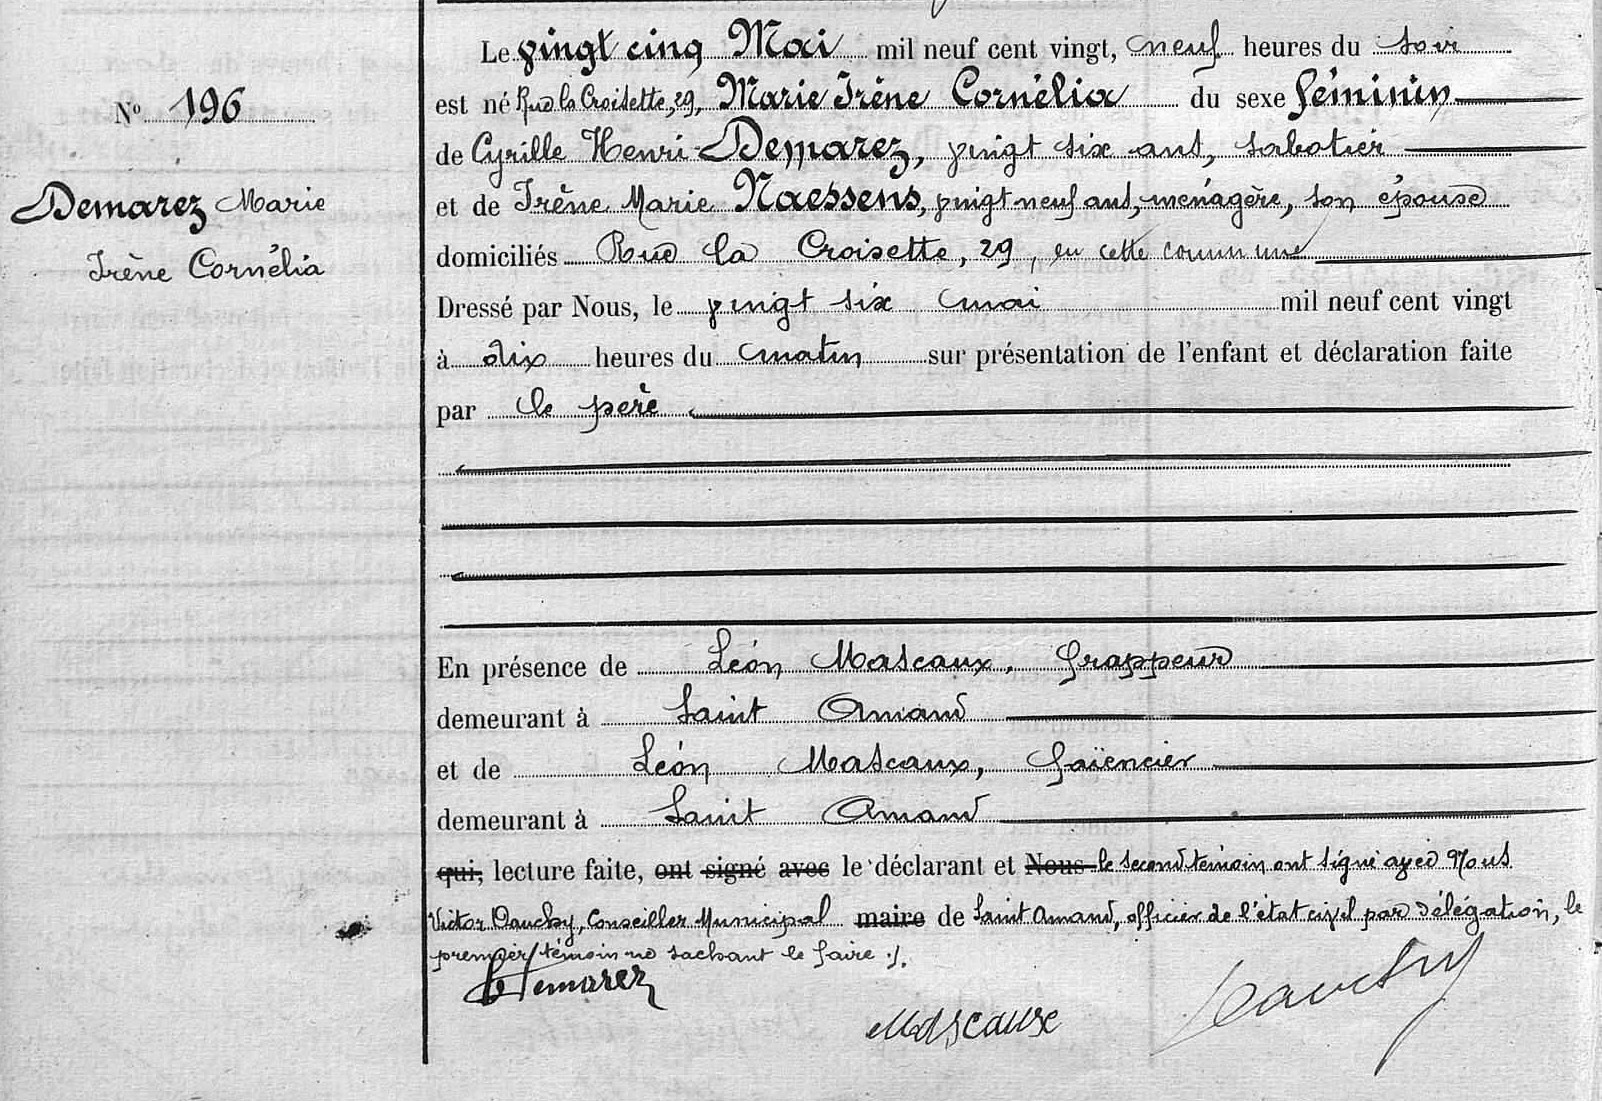 Le vingt cinq Mai mil neuf cent vingt, neuf heures du soir
N° 196
est né Rue la Croisette, 29, Marie Irène Cornélia du sexe féminin
de Cyrille Henri Demarez, vingt six ans, sabotier
Demarez Marie
Irène Cornélia
et de Irène Marie Naessens, vingt neuf ans, ménagère, son épouse
domiciliés Rue la Croisette, 29, en cette commune
Dressé par Nous, le vingt six mai mil neuf cent vingt
à dix heures du matin sur présentation de l'enfant et déclaration faite
par le père
En présence de Léon Mascaux, frappeur
demeurant à Saint Amand
et de Léon Mascaux, faïencier
demeurant à Saint Amand
qui, lecture faite, ont signé avec le déclarant et Nous le second témoin ont signé avec Nous
Victor Dauchy, Conseiller Municipal maire de Saint Amand, officier de l'état civil par délégation, le
premier témoin ne sachant le faire ./.
Demarez
Mascaux
Dauchy